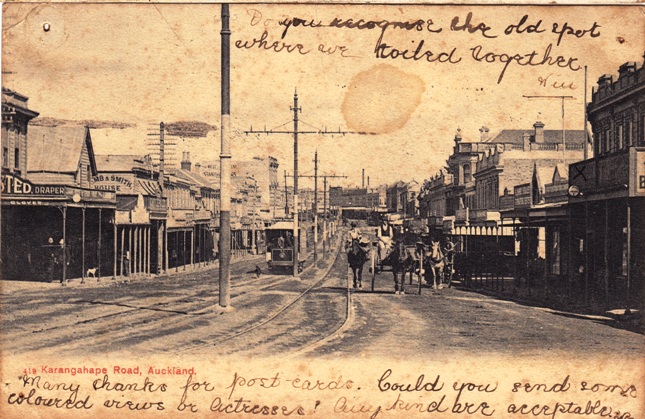 Do you recognise the old spot
where we toiled together
Will
STED. DRAPER
& SMITH
HOUSE
419 Karangahape Road, Auckland.
"Many thanks for post-cards. Could you send some
coloured views or Actresses? Any kind are acceptable